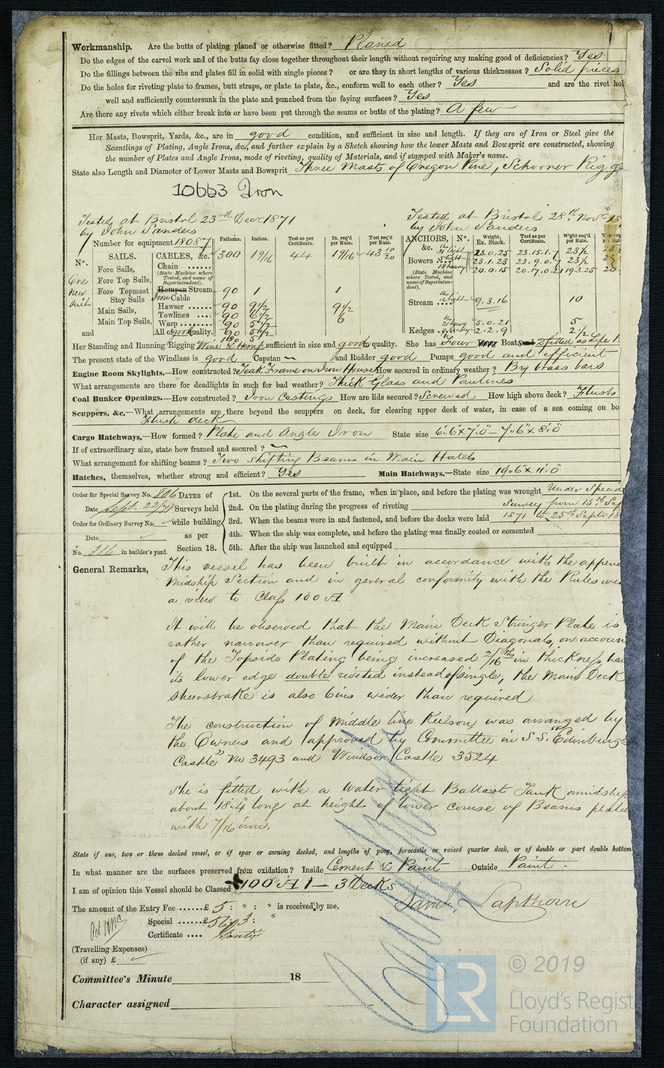 Workmanship. Are the butts of plating planed or otherwise fitted? Planed
Do the edges of the carvel work and of the butts fay close together throughout their length without requiring any making good of deficiencies? Yes
Do the fillings between the ribs and plates fill in solid with single pieces? or are they in short lengths of various thicknesses? Solid pieces
Do the holes for riveting plate to frames, butt straps, or plate to plate, &c., conform well to each other? Yes and are the rivet hol
well and sufficiently countersunk in the plate and punched from the faying surfaces? Yes
Are there any rivets which either break into or have been put through the seams or butts of the plating? A few
Her Masts, Bowsprit, Yards, &c., are in good condition, and sufficient in size and length. If they are of Iron or Steel give the
Scantlings of Plating, Angle Irons, &c., and further explain by a Sketch showing how the lower Masts and Bowsprit are constructed, showing
the number of Plates and Angle Irons, mode of riveting, quality of Materials, and if stamped with Maker's name.
State also Length and Diameter of Lower Masts and Bowsprit Three Masts of Oregon Pine, Schooner Rigg
10663 Iron
Tested at Bristol 23rd Dec 1871
by John Sanders
Tested at Bristol 28th Nov 18
by John Sanders
Number for equipment 18057
Fathoms. Inches. Test as per Certificate. In. req'd per Rule. Test req'd per Rule.
ANCHORS, &c. Nº. Weight. Ex. Stock. Test as per Certificate. Wght. req'd per Rule.
Nº. SAILS. CABLES, &c. 300 1 9/16 44 1 9/16 43 18/20
Fore Sails, Chain
Fore Top Sails, (State Machine where Tested, and name of Superintendent.)
Fore Topmast Stay Sails
Hempen Stream Cable 90 1 1
Main Sails, Hawser 90 9½ 9½
Main Top Sails, Towlines 90 6½ 6
Warp 90 5½
and All of good quality. 90 5½
Bowers 23.0.25 23.15.1.7 23½
23.1.23 23.9.0.7 23½
20.0.15 20.7.0.21 19.3.25
(State Machine where Tested, and name of Superintendent.)
Stream 9.3.16 10
Kedges 5.0.21 5
2.2.9 2½
Her Standing and Running Rigging Wire & Hemp sufficient in size and good quality. She has Four Boats
The present state of the Windlass is good Capstan and Rudder good Pumps good and efficient
Engine Room Skylights.—How constructed? Teak Frame on Iron House How secured in ordinary weather? By brass bars
What arrangements are there for deadlights in such for bad weather? Thick Glass and Paulines
Coal Bunker Openings.—How constructed? Iron Castings How are lids secured? Screwed How high above deck? Flush
Scuppers, &c.—What arrangements are there beyond the scuppers on deck, for clearing upper deck of water, in case of a sea coming on bo
Flush deck
Cargo Hatchways.—How formed? Plate and Angle Iron State size 6.6 x 7.0 – 7.6 x 8.0
If of extraordinary size, state how framed and secured?
What arrangement for shifting beams? Two Shifting Beams in Main Hatch
Hatches, themselves, whether strong and efficient? Yes Main Hatchways.—State size 19.6 x 11.0
Order for Special Survey No. 206 Dates of 1st. On the several parts of the frame, when in place, and before the plating was wrought Under Special
Date Sept. 22/71 Surveys held 2nd. On the plating during the progress of riveting Survey from 15th Sep
Order for Ordinary Survey No. while building 3rd. When the beams were in and fastened, and before the decks were laid 1871 to 25th Sept 18
Date as per 4th. When the ship was complete, and before the plating was finally coated or cemented
No. 216 in builder's yard. Section 18. 5th. After the ship was launched and equipped
General Remarks, This vessel has been built in accordance with the appen
Midship Section and in general conformity with the Rules
a view to Class 100 A
It will be observed that the Main Deck Stringer Plate is
rather narrower than required without Diagonals, on accoun
of the Topside Plating being increased 2/16ths in thickness, ha
its lower edge double riveted instead of single, the Main Deck
sheerstrake is also 6ins wider than required
The construction of Middle line Keelson was arranged by
the Owners and approved by Committee in S.S. "Edinburgh
Castle" No 3493 and Windsor Castle 3524
She is fitted with a water tight Ballast Tank amidship
about 18.4 long at height of lower course of Beams plate
with 7/16 iron,
State if one, two or three decked vessel, or if spar or awning decked, and lengths of poop, forecastle or raised quarter deck, or of double or part double bottom
In what manner are the surfaces preserved from oxidation? Inside Cement & Paint Outside Paint.
I am of opinion this Vessel should be Classed 100 A 1 – 3 Decks
The amount of the Entry Fee £ 5 : " : " is received by me, Lapthorn
Special
Certificate Gratis
(Travelling Expenses)
(if any) £
Committee's Minute 18
Character assigned
LR
© 2019
Lloyd's Register
Foundation